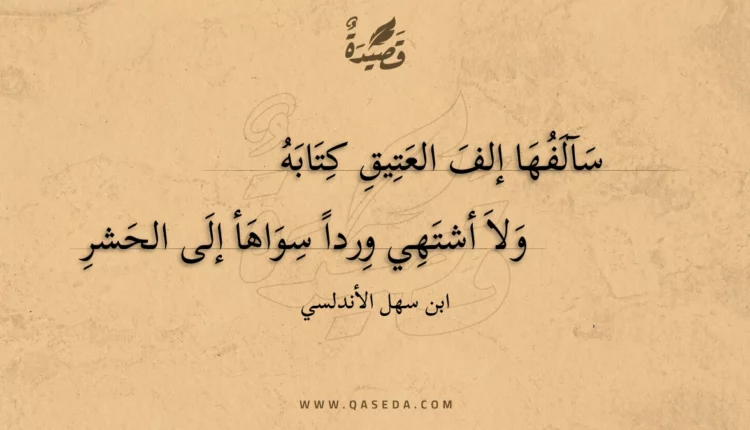 قَصِيْدَةٌ
سَآلَفُهَا إلفَ العَتِيقِ كِتَابَهُ
وَلاَ أشتَهِي وِرداً سِوَاهَأ إلَى الحَشرِ
ابن سهل الأندلسي
WWW.QASEDA.COM